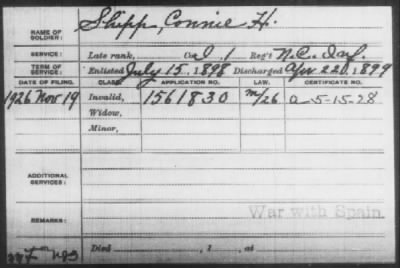 NAME OF SOLDIER: Shipp, Connie H.
SERVICE: Late rank, Co. I, 1 Reg't N.C. Inf.
TERM OF SERVICE: Enlisted July 15, 1898 Discharged Apr 22, 1899
DATE OF FILING. CLASS. APPLICATION NO. LAW. CERTIFICATE NO.
1926 Nov 19 Invalid, 1561830 m/26 a-5-15-28
Widow,
Minor,
ADDITIONAL SERVICES:
War with Spain.
REMARKS:
Died , 1 , at